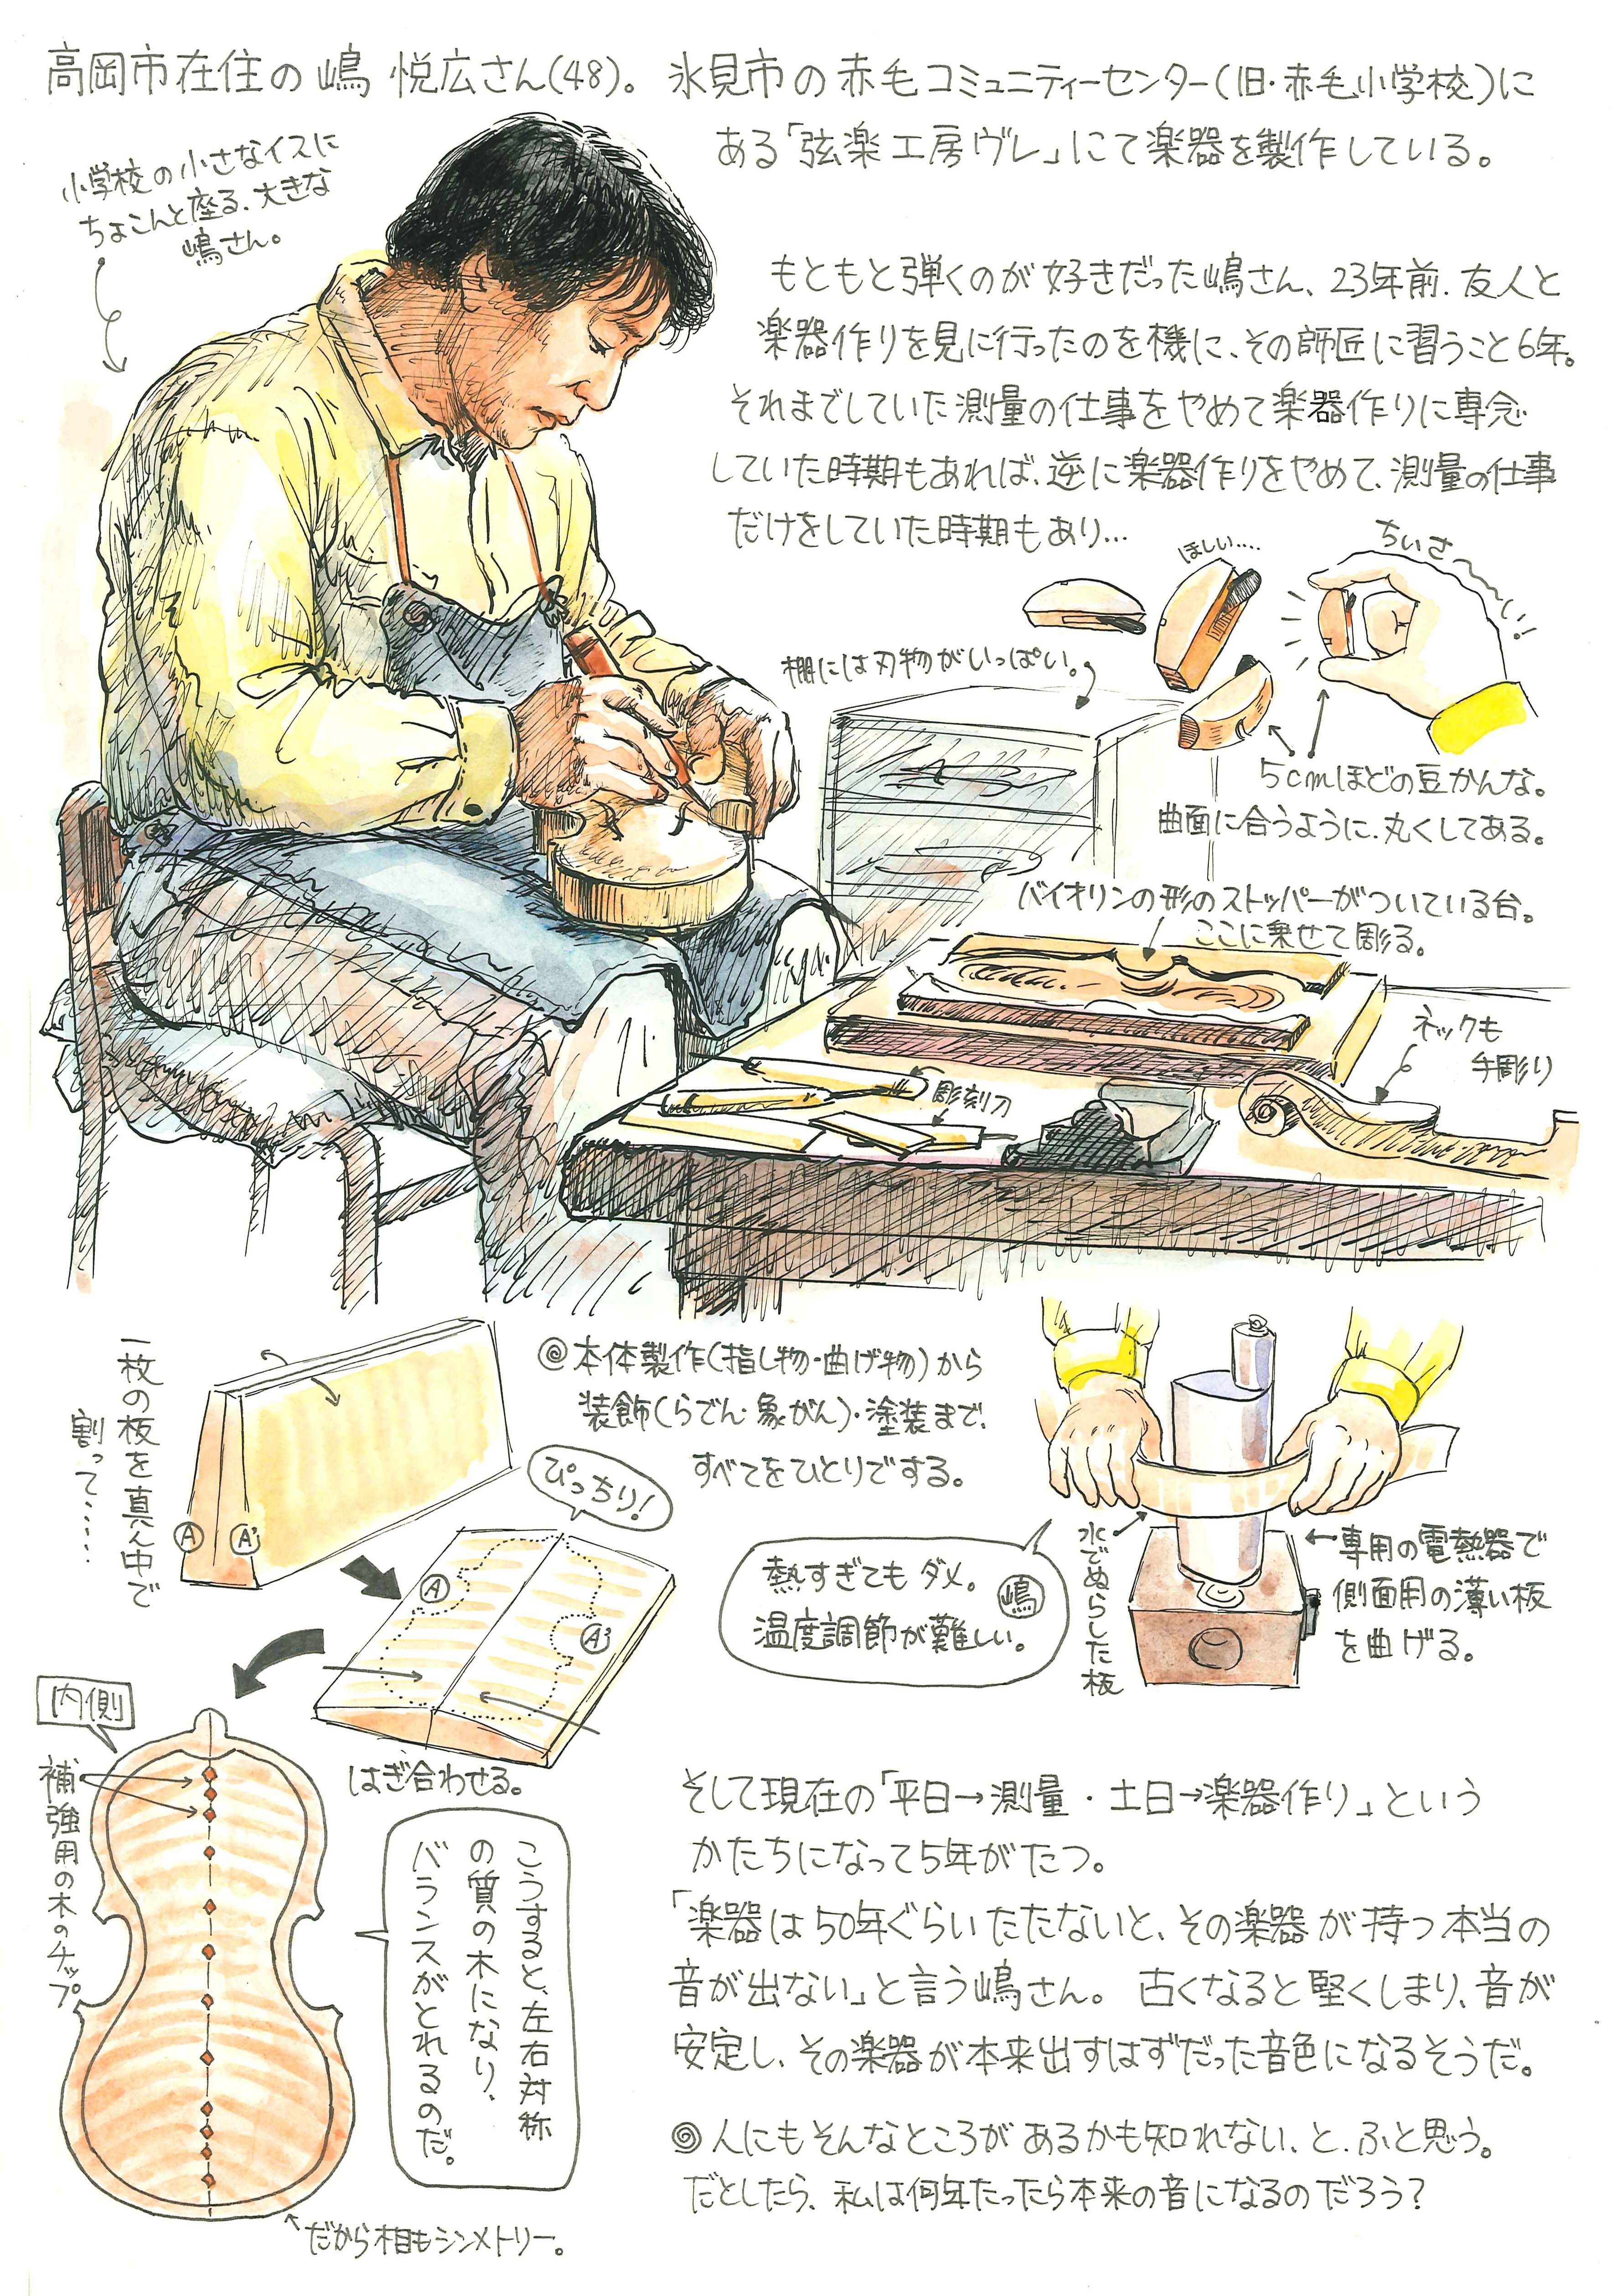 高岡市在住の嶋 悦広さん(48)。氷見市の赤毛コミュニティーセンター(旧・赤毛小学校)に
ある「弦楽工房ヴレ」にて楽器を製作している。
小学校の小さなイスに
ちょこんと座る、大きな
嶋さん。
もともと弾くのが好きだった嶋さん、23年前、友人と
楽器作りを見に行ったのを機に、その師匠に習うこと6年。
それまでしていた測量の仕事をやめて楽器作りに専念
していた時期もあれば、逆に楽器作りをやめて、測量の仕事
だけをしていた時期もあり…
ほしい‥‥
ちいさ〜い!
棚には刃物がいっぱい。
5cmほどの豆かんな。
曲面に合うように、丸くしてある。
バイオリンの形のストッパーがついている台。
ここに乗せて彫る。
ネックも
手彫り
彫刻刀
一枚の板を真ん中で
割って‥‥‥
Ⓐ
Ⓐ'
◎本体製作(指し物・曲げ物)から
装飾(らでん・象がん)・塗装まで、
すべてをひとりでする。
ぴっちり!
Ⓐ
Ⓐ'
はぎ合わせる。
熱すぎてもダメ。
温度調節が難しい。
嶋
水でぬらした板
←専用の電熱器で
側面用の薄い板
を曲げる。
内側
補強用の木のチップ
こうすると、左右対称
の質の木になり、
バランスがとれるのだ。
だから木目もシンメトリー。
そして現在の「平日→測量・土日→楽器作り」という
かたちになって5年がたつ。
「楽器は50年ぐらいたたないと、その楽器が持つ本当の
音が出ない」と言う嶋さん。古くなると堅くしまり、音が
安定し、その楽器が本来出すはずだった音色になるそうだ。
◎人にもそんなところがあるかも知れない、と、ふと思う。
だとしたら、私は何年たったら本来の音になるのだろう?